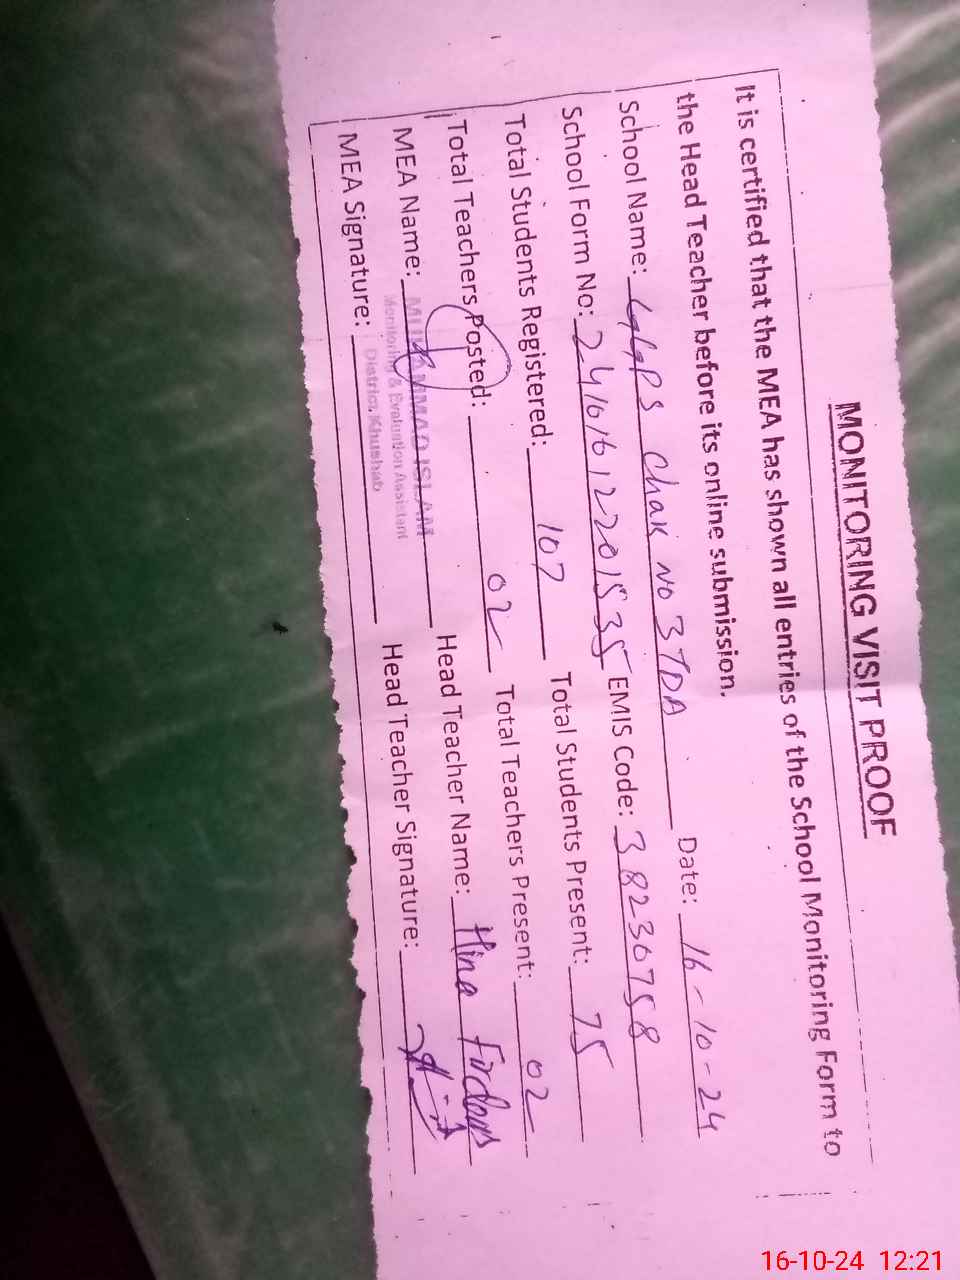 MONITORING VISIT PROOF
It is certified that the MEA has shown all entries of the School Monitoring Form to
the Head Teacher before its online submission.
School Name: GGPS Chak No 3 TDA Date: 16-10-24
School Form No: 24161612201535 EMIS Code: 38230758
Total Students Registered: 107 Total Students Present: 75
Total Teachers Posted: 02 Total Teachers Present: 02
MEA Name: MUHAMMAD ISLAM Head Teacher Name: Hina Firdous
Monitoring & Evaluation Assistant
District Khushab
MEA Signature: Head Teacher Signature:
16-10-24 12:21